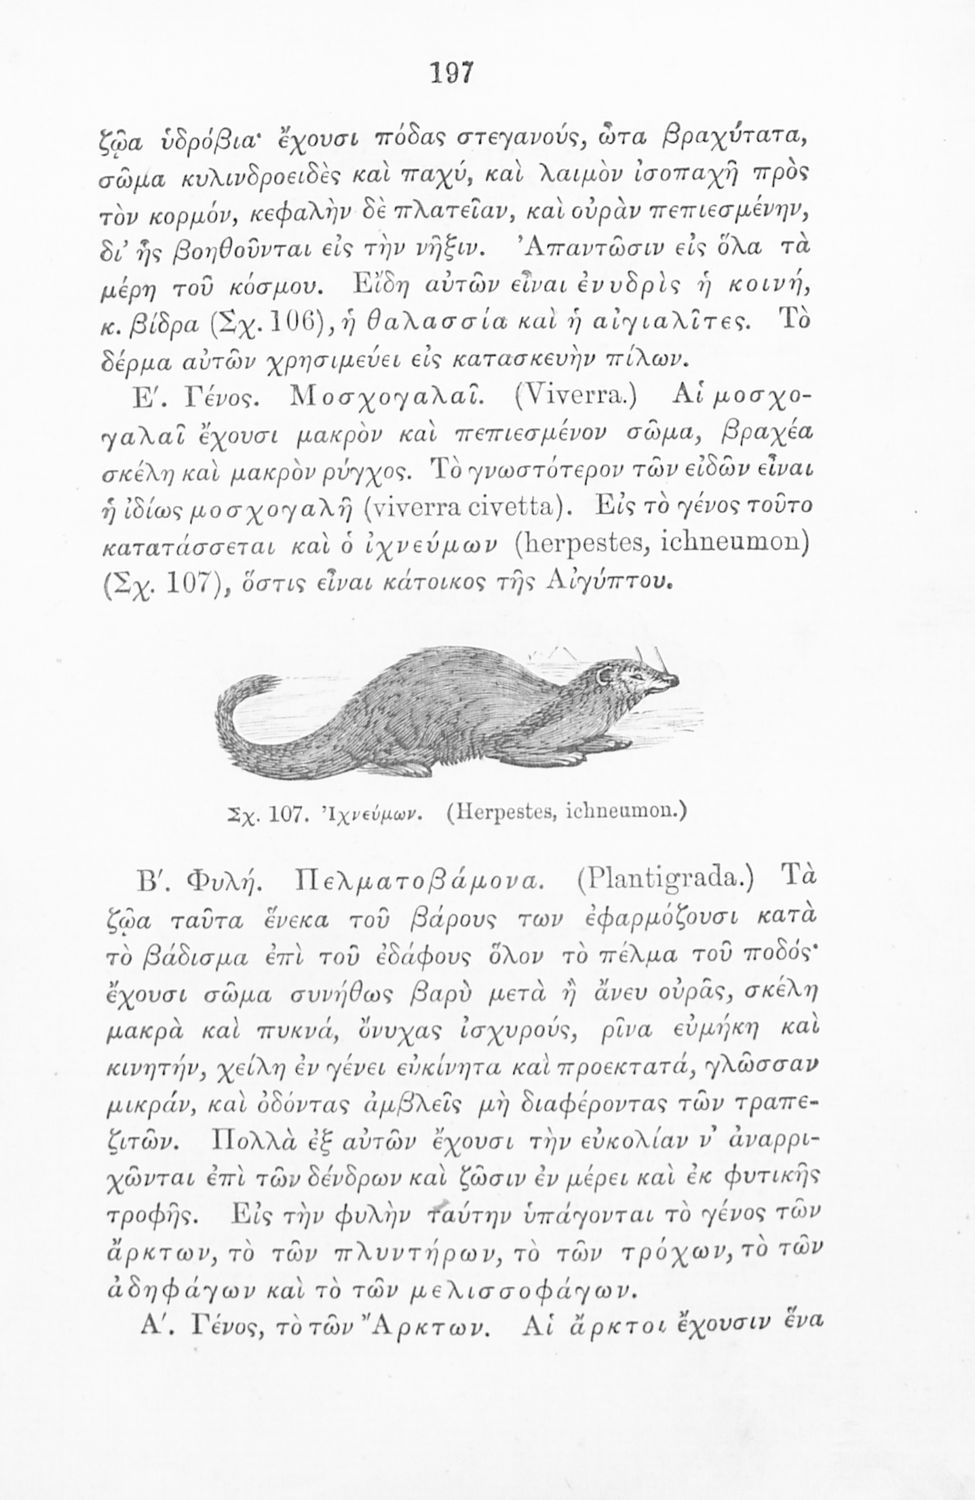 197
ζῷα ὑδρόβια· ἔχουσι πόδας στεγανούς, ὦτα βραχύτατα,
σῶμα κυλινδροειδὲς καὶ παχύ, καὶ λαιμὸν ἰσοπαχῆ πρὸς
τὸν κορμόν, κεφαλὴν δὲ πλατεῖαν, καὶ οὐρὰν πεπιεσμένην,
δι’ ἧς βοηθοῦνται εἰς τὴν νῆξιν. Ἀπαντῶσιν εἰς ὅλα τὰ
μέρη τοῦ κόσμου. Εἴδη αὐτῶν εἶναι ἐνυδρὶς ἡ κοινή,
κ. βίδρα (Σχ. 106), ἡ θαλασσία καὶ ἡ αἰγιαλῖτες. Τὸ
δέρμα αὐτῶν χρησιμεύει εἰς κατασκευὴν πίλων.
Ε′. Γένος. Μοσχογαλαῖ. (Viverra.) Αἱ μοσχο-
γαλαῖ ἔχουσι μακρὸν καὶ πεπιεσμένον σῶμα, βραχέα
σκέλη καὶ μακρὸν ρύγχος. Τὸ γνωστότερον τῶν εἰδῶν εἶναι
ἡ ἰδίως μοσχογαλῆ (viverra civetta). Εἰς τὸ γένος τοῦτο
κατατάσσεται καὶ ὁ ἰχνεύμων (herpestes, ichneumon)
(Σχ. 107), ὅστις εἶναι κάτοικος τῆς Αἰγύπτου.
Σχ. 107. Ἰχνεύμων. (Herpestes, ichneumon.)
Β′. Φυλή. Πελματοβάμονα. (Plantigrada.) Τὰ
ζῷα ταῦτα ἕνεκα τοῦ βάρους των ἐφαρμόζουσι κατὰ
τὸ βάδισμα ἐπὶ τοῦ ἐδάφους ὅλον τὸ πέλμα τοῦ ποδός·
ἔχουσι σῶμα συνήθως βαρὺ μετὰ ἢ ἄνευ οὐρᾶς, σκέλη
μακρὰ καὶ πυκνά, ὄνυχας ἰσχυρούς, ρῖνα εὐμήκη καὶ
κινητήν, χείλη ἐν γένει εὐκίνητα καὶ προεκτατά, γλῶσσαν
μικράν, καὶ ὀδόντας ἀμβλεῖς μὴ διαφέροντας τῶν τραπε-
ζιτῶν. Πολλὰ ἐξ αὐτῶν ἔχουσι τὴν εὐκολίαν ν’ ἀναρρι-
χῶνται ἐπὶ τῶν δένδρων καὶ ζῶσιν ἐν μέρει καὶ ἐκ φυτικῆς
τροφῆς. Εἰς τὴν φυλὴν ταύτην ὑπάγονται τὸ γένος τῶν
ἄρκτων, τὸ τῶν πλυντήρων, τὸ τῶν τρόχων, τὸ τῶν
ἀδηφάγων καὶ τὸ τῶν μελισσοφάγων.
Α′. Γένος, τὸ τῶν Ἄρκτων. Αἱ ἄρκτοι ἔχουσιν ἕνα